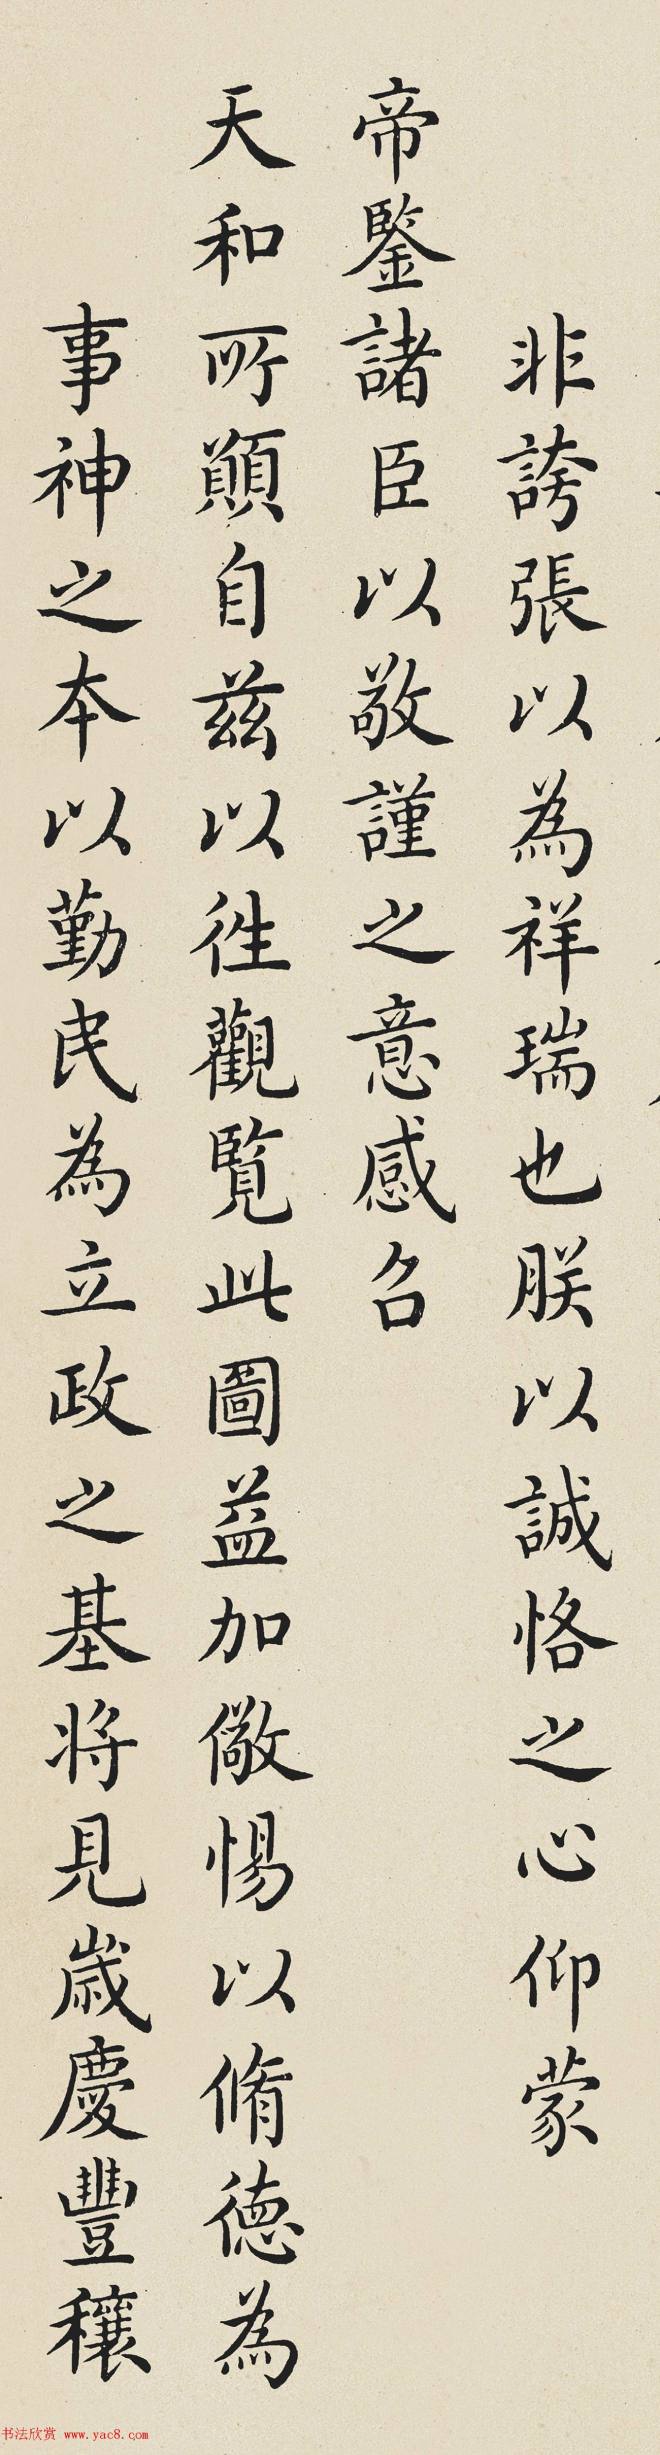 非誇張以為祥瑞也朕以誠恪之心仰蒙
帝鑒諸臣以敬謹之意感召
天和所顒自兹以徃觀覽此圖益加儆惕以脩德為
事神之本以勤民為立政之基将見嵗慶豐穰
书法欣赏 www.yac8.com